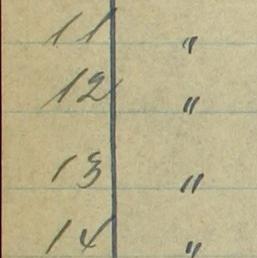 11 "
12 "
13 "
14 "